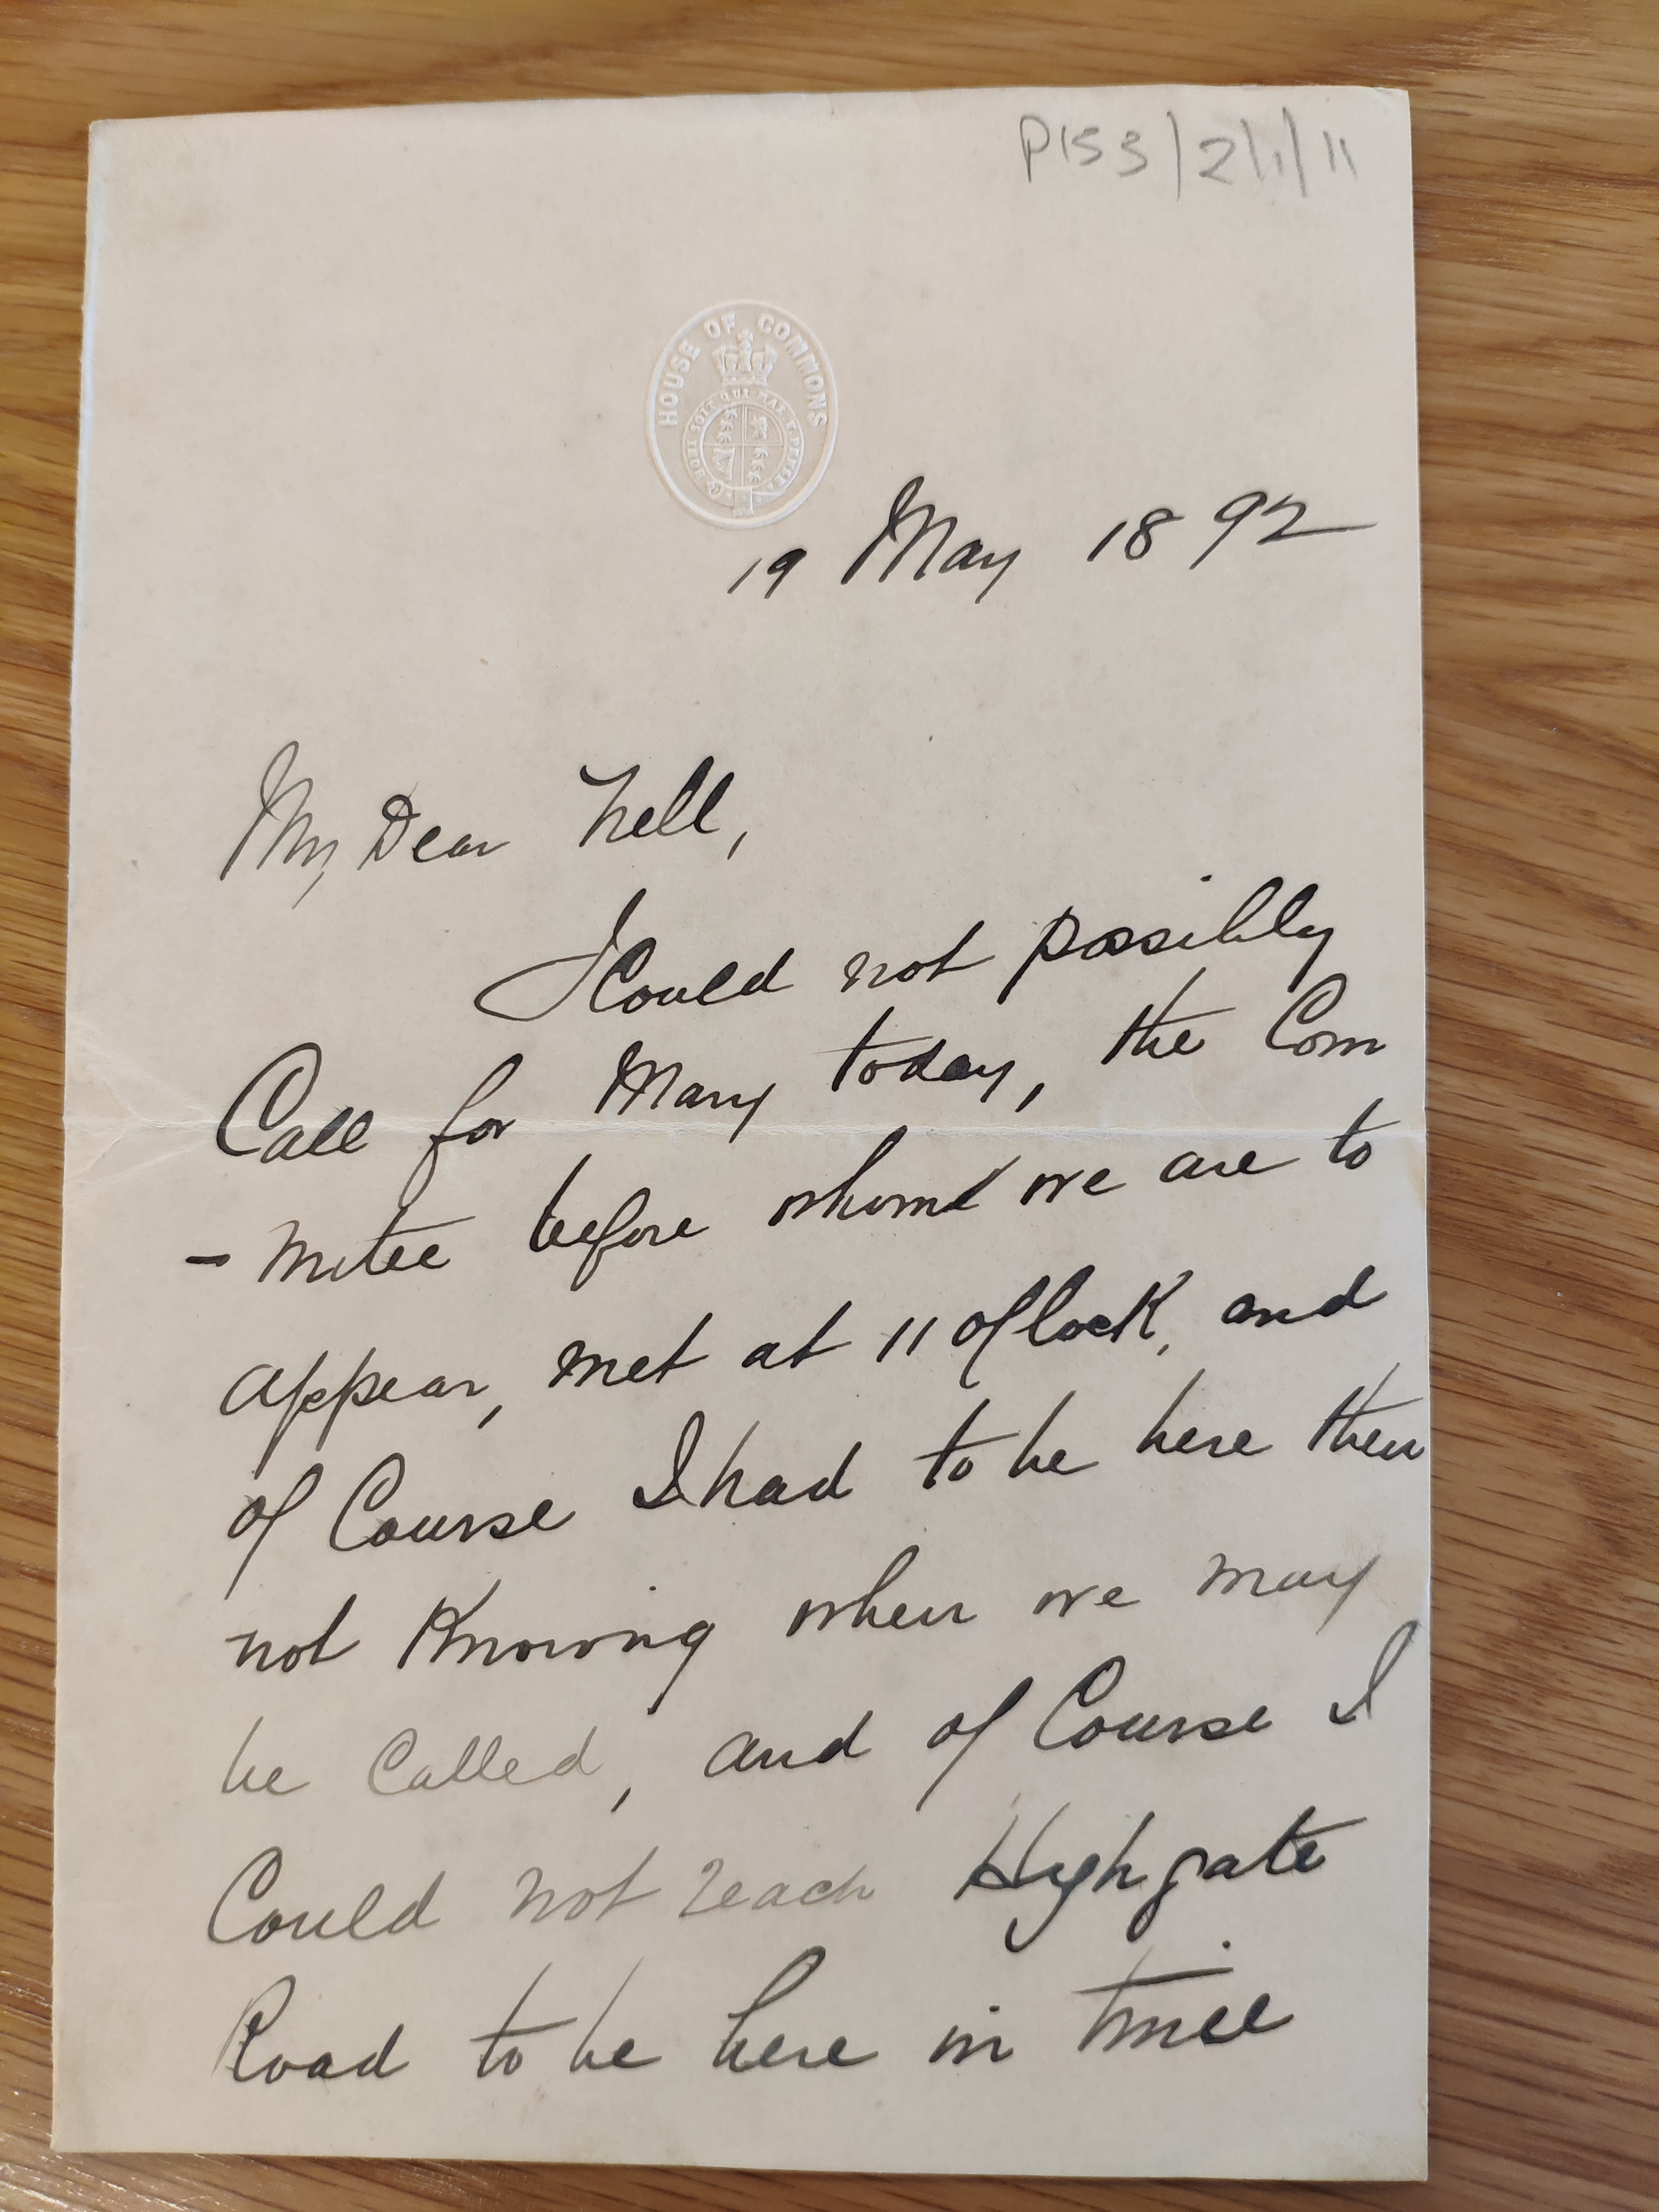 P153/2/1/11
HOUSE OF COMMONS
HONI SOIT QUI MAL Y PENSE
19 May 1892
My Dear Nell,
I Could not possibly
Call for Mary today, the Com
- mitee before whom we are to
appear, met at 11 O'Clock, and
of Course I had to be here then
not Knowing when we may
be Called, and of Course I
Could not reach Highgate
Road to be here in time